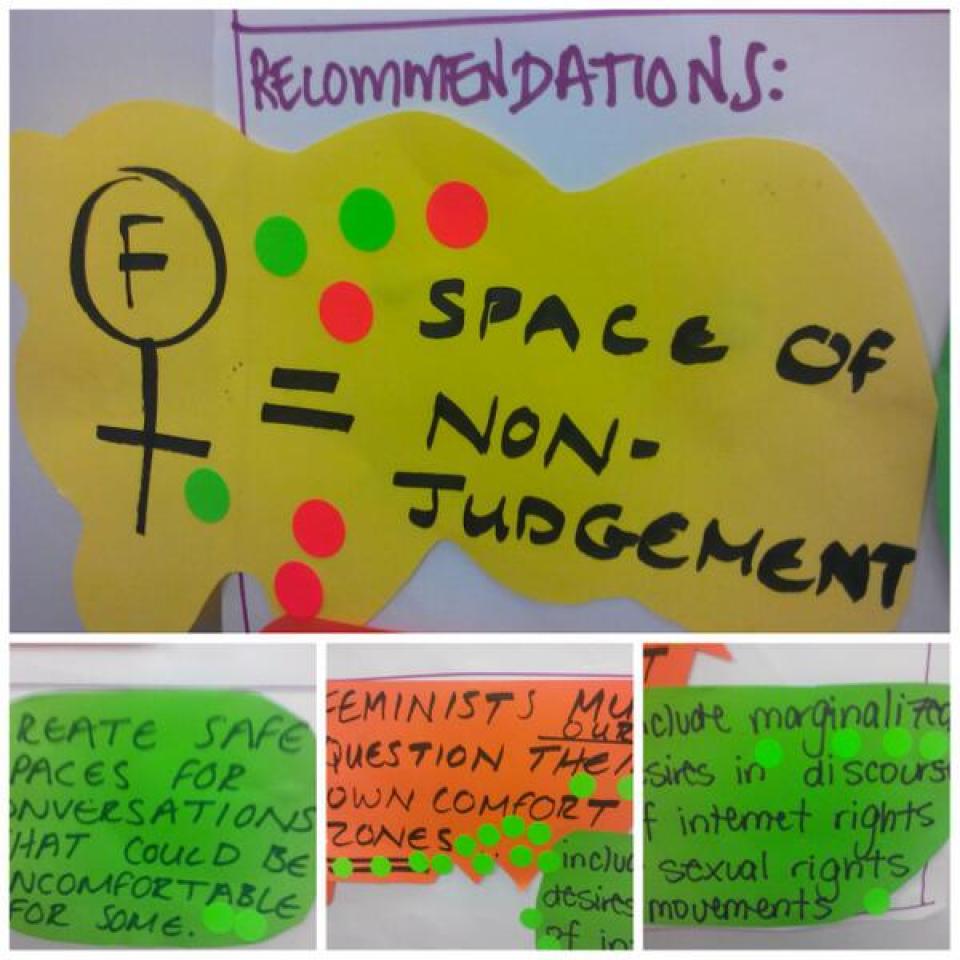 RECOMMENDATIONS:
F
= SPACE OF
NON-
JUDGEMENT
REATE SAFE
PACES FOR
ONVERSATIONS
HAT COULD BE
NCOMFORTABLE
FOR SOME.
FEMINISTS MU
OUR
QUESTION THEI
OWN COMFORT
ZONES
includ
desires
of in
T
nclude marginalized
sires in discours
f internet rights
sexual rights
movements